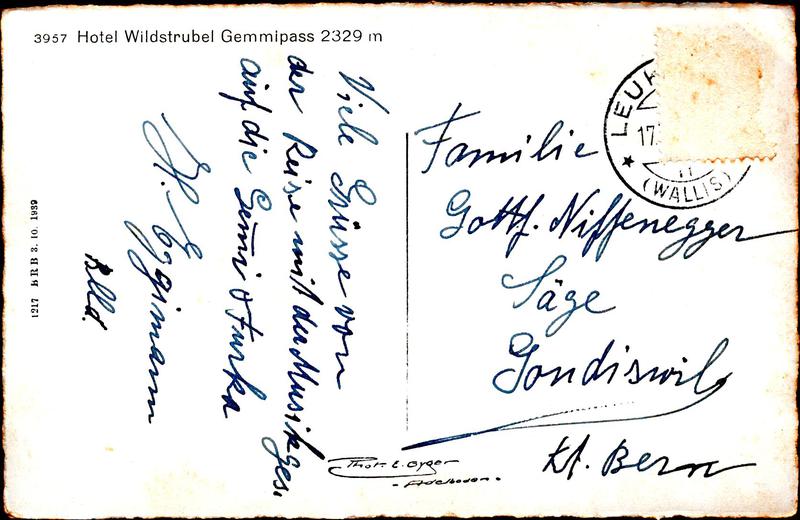 3957 Hotel Wildstrubel Gemmipass 2329 m
Viele Grüsse von
der Reise mit der Musikges.
auf die Gemmi & Furka
H. Eggimann
1217 BRB 3. 10. 1939
LEUK
17.
(WALLIS)
Familie
Gottf. Niffenegger
Säge
Gondiswil
Kt. Bern
Phot. E. Gyger
- Adelboden -